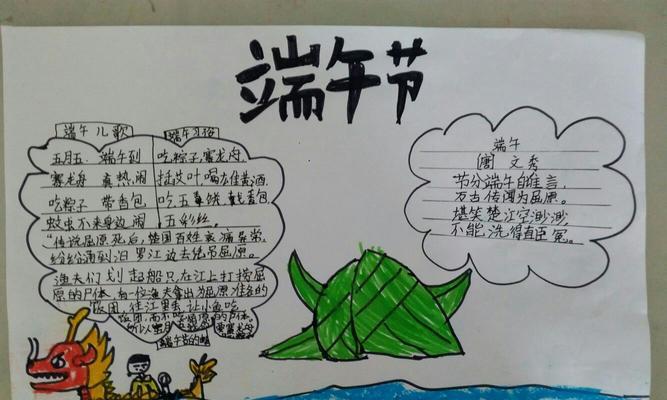 端午节
端午儿歌
端午习俗
五月五 端午到
赛龙舟 真热闹
吃粽子 带香包
蚊虫不来身边闹
吃粽子,赛龙舟,
挂艾叶 喝雄黄酒,
吃五毒饼,戴香包
五彩丝。
"传说屈原死后,楚国百姓哀痛异常,
纷纷涌到汨罗江边去凭吊屈原。
渔夫们划起船只,在江上打捞屈
原的尸体,有一位渔夫拿出为屈原准备的
饭团,往江里丢,让小鱼吃
端午
唐 文秀
节分端午自谁言,
万古传闻为屈原。
堪笑楚江空渺渺,
不能洗得直臣冤。